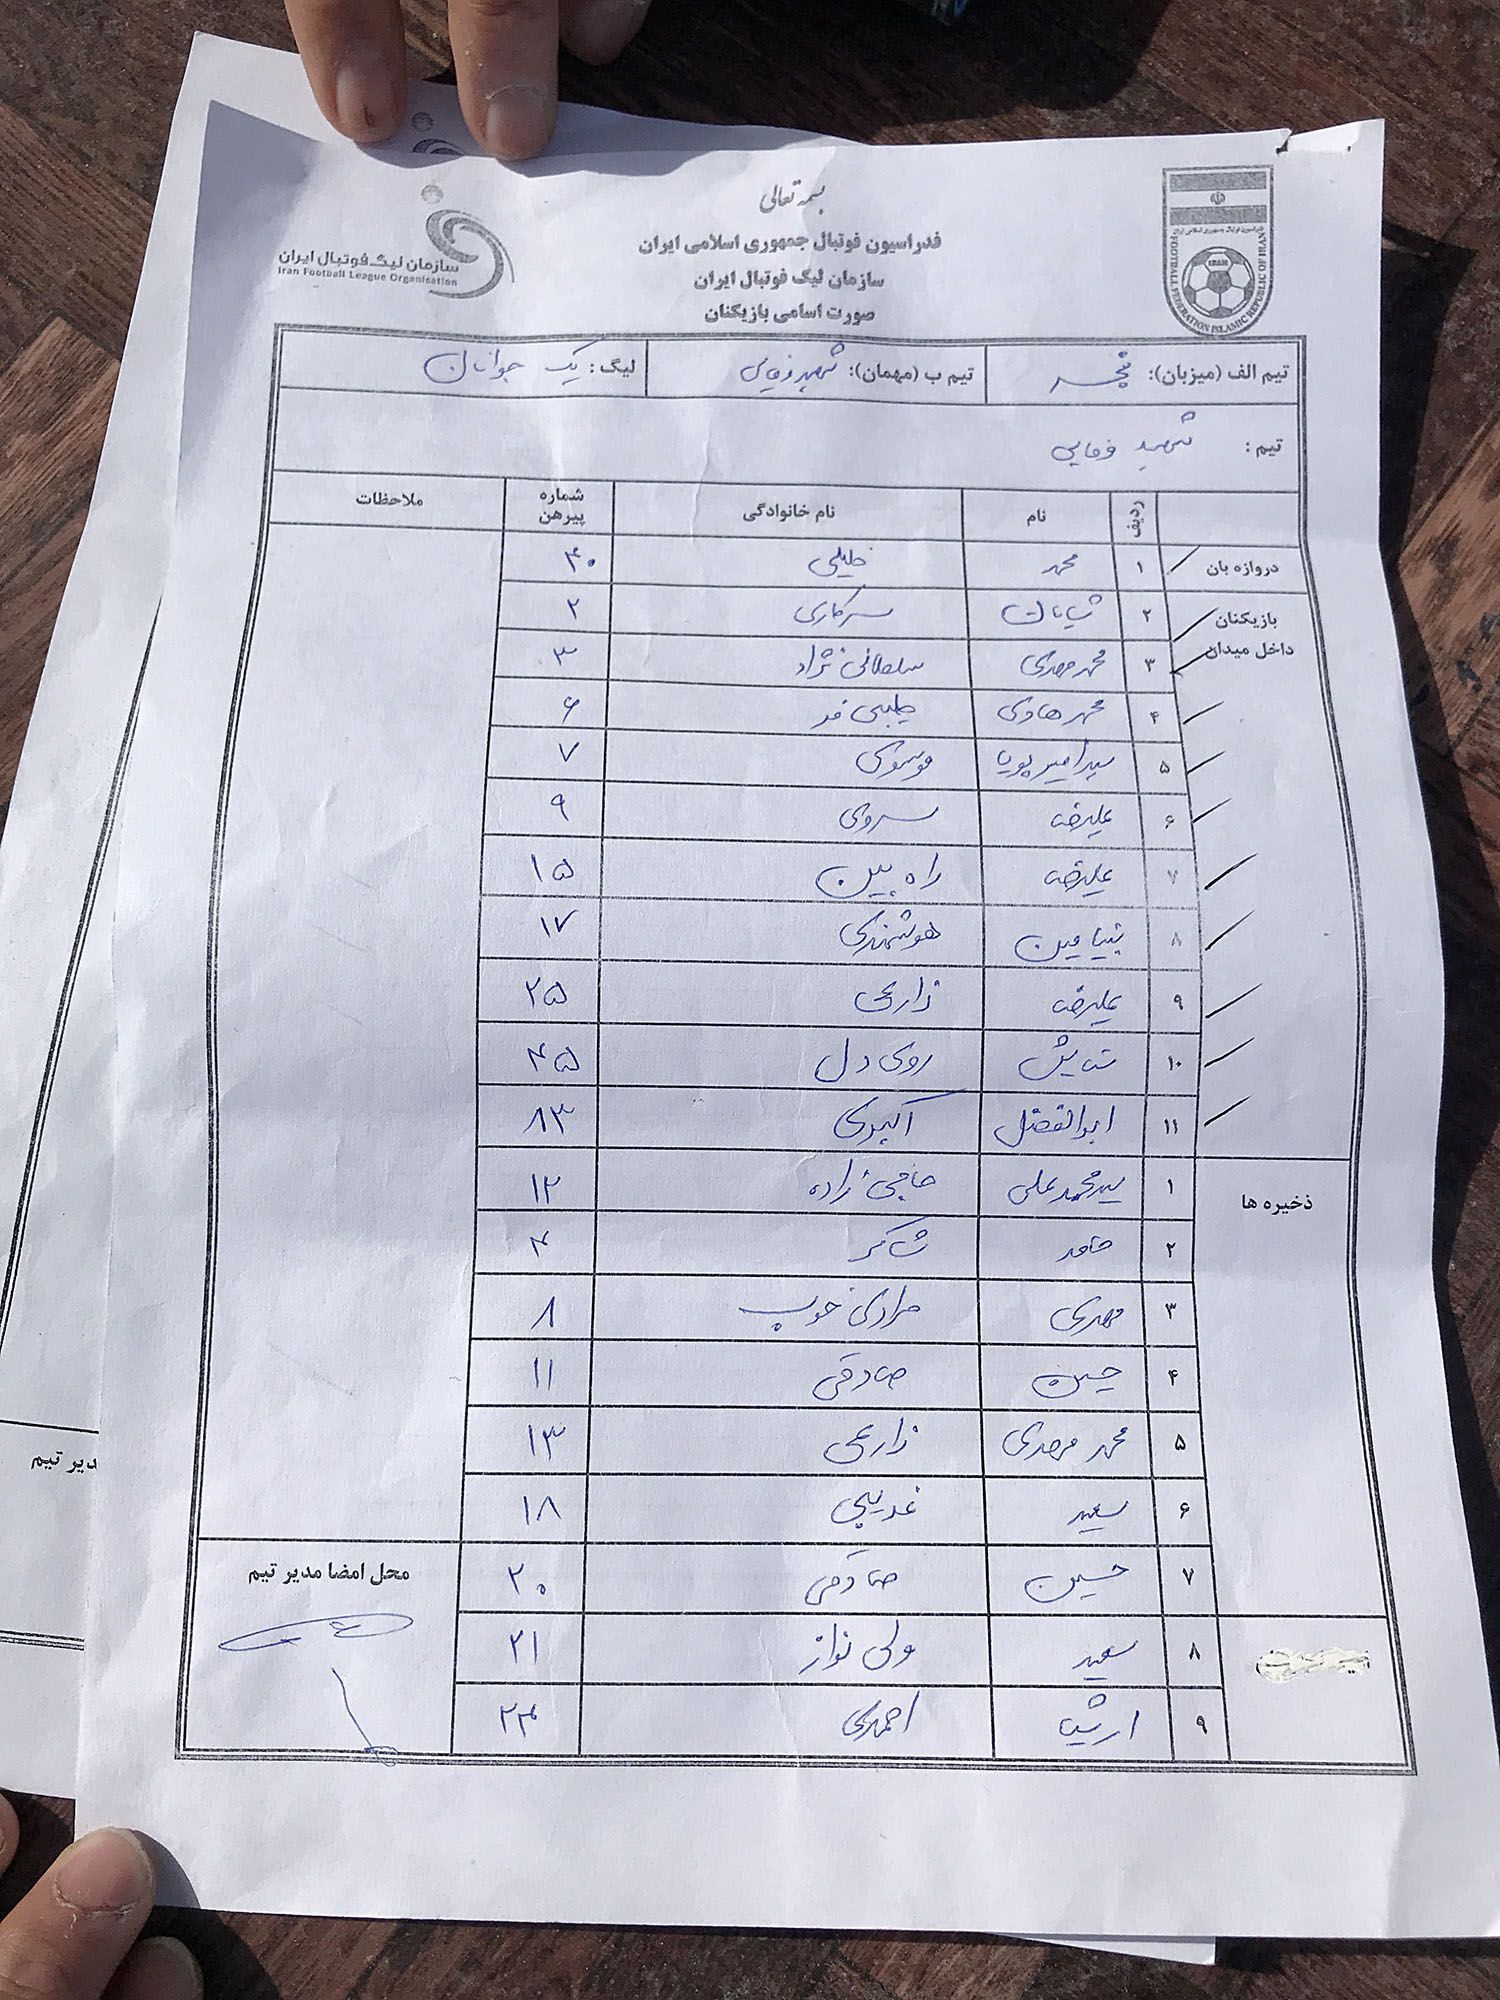 بسمه تعالی
فدراسیون فوتبال جمهوری اسلامی ایران
سازمان لیگ فوتبال ایران
صورت اسامی بازیکنان
سازمان لیگ فوتبال ایران
Iran Football League Organisation
فدراسیون فوتبال جمهوری اسلامی ایران
IRAN
FOOTBALL FEDERATION ISLAMIC REPUBLIC OF IRAN
تیم الف (میزبان): فجر تیم ب (مهمان): شهید وفایی لیگ: یک جوانان
تیم: شهید وفایی
ردیف نام نام خانوادگی شماره پیرهن ملاحظات
دروازه بان ۱ محمد خلیلی ۴۰
بازیکنان داخل میدان ۲ سرکاری ۲
۳ محمد مهدی سلطانی نژاد ۳
۴ محمد هادی ۶
۵ سید امیر پویا موسوی ۷
۶ علیرضا سروی ۹
۷ علیرضا راه بین ۱۵
۸ بنیامین هوشمندی ۱۷
۹ علیرضا زارعی ۲۵
۱۰ ستایش روی دل ۴۵
۱۱ ابوالفضل اکبری ۸۳
ذخیره ها ۱ سید محمد علی حاجی زاده ۱۲
۲ حامد شاکر ۴
۳ مهدی مرادی خوب ۸
۴ حسین صادقی ۱۱
۵ محمد مهدی زارعی ۱۳
۶ سعید غریبی ۱۸
۷ حسین صادقی ۲۰
۸ سعید ولی نواز ۲۱
۹ ارشیا احمدی ۲۳
محل امضا مدیر تیم
مدیر تیم